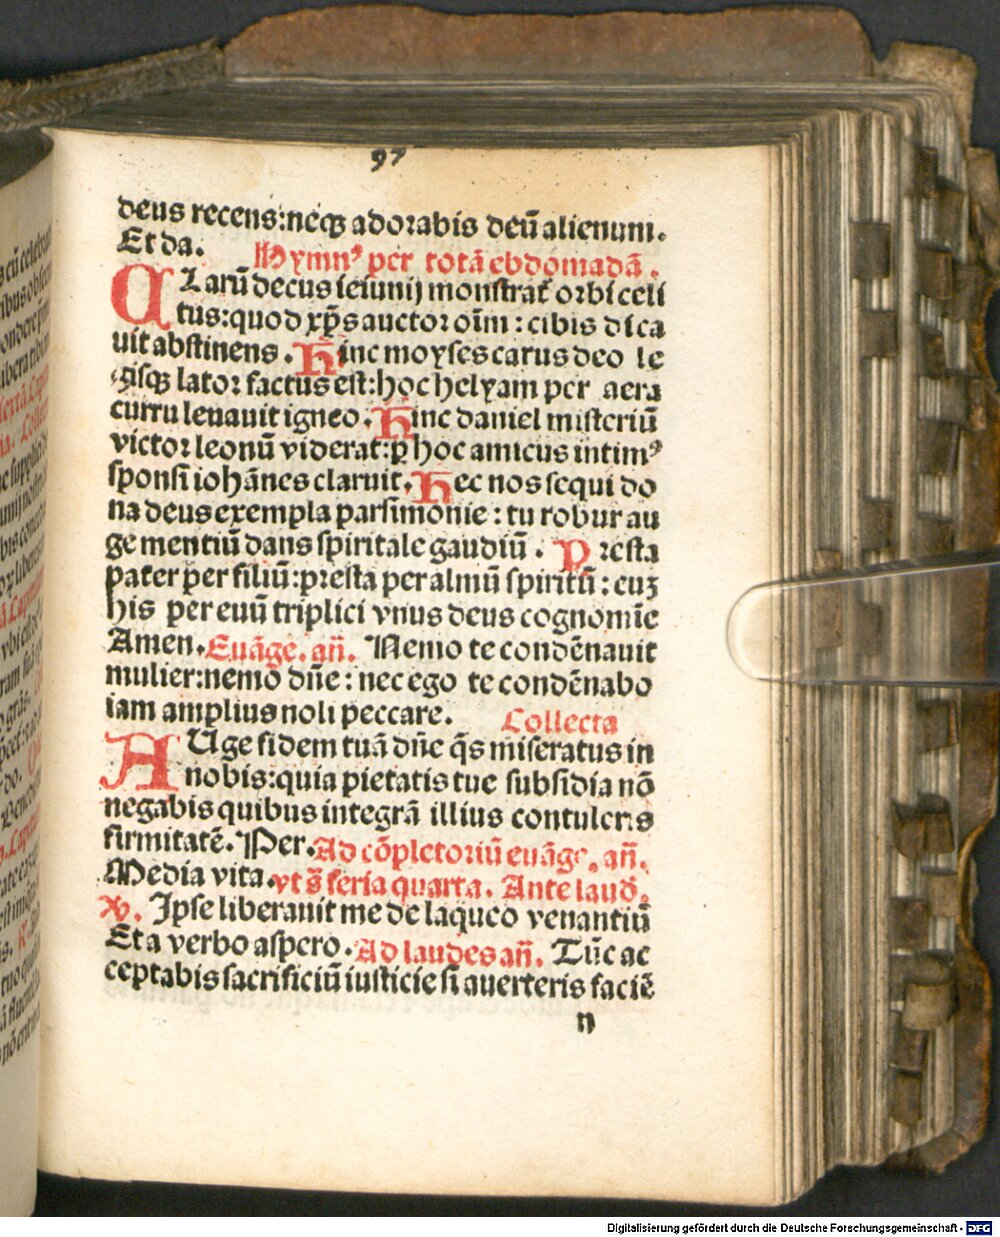 97
deus recens:neqꝫ adorabis deū alienum.
Et da. Hymnꝰ per totā ebdomadā.
CLarū decus ieiunij monstrat᷑ orbi celi
tus:quod xp̄s auctor oīm : cibis dica
uit abstinens. Hinc moyses carus deo le
gisqꝫ lator factus est:hoc helyam per aera
curru leuauit igneo. Hinc daniel misteriū
victor leonū viderat:ꝑ hoc amicus intimꝰ
sponsi iohānes claruit. Hec nos sequi do
na deus exempla parsimonie : tu robur au
ge mentiū dans spiritale gaudiū. Presta
pater per filiū:presta per almū spiritū : cuȝ
his per euū triplici vnus deus cognomīe
Amen. Euāge. an̄. Nemo te condēnauit
mulier:nemo dn̄e : nec ego te condēnabo
iam amplius noli peccare. Collecta
AUge fidem tuā dn̄e q̄s miseratus in
nobis:quia pietatis tue subsidia nō
negabis quibus integrā illius contuleris
firmitatē. Per. Ad cōpletoriū euāge. an̄.
Media vita. vt s̄ feria quarta. Ante laud̄.
℣. Ipse liberauit me de laqueo venantiū
Et a verbo aspero. Ad laudes an̄. Tūc ac
ceptabis sacrificiū iusticie si auerteris faciē
n
Digitalisierung gefördert durch die Deutsche Forschungsgemeinschaft - DFG